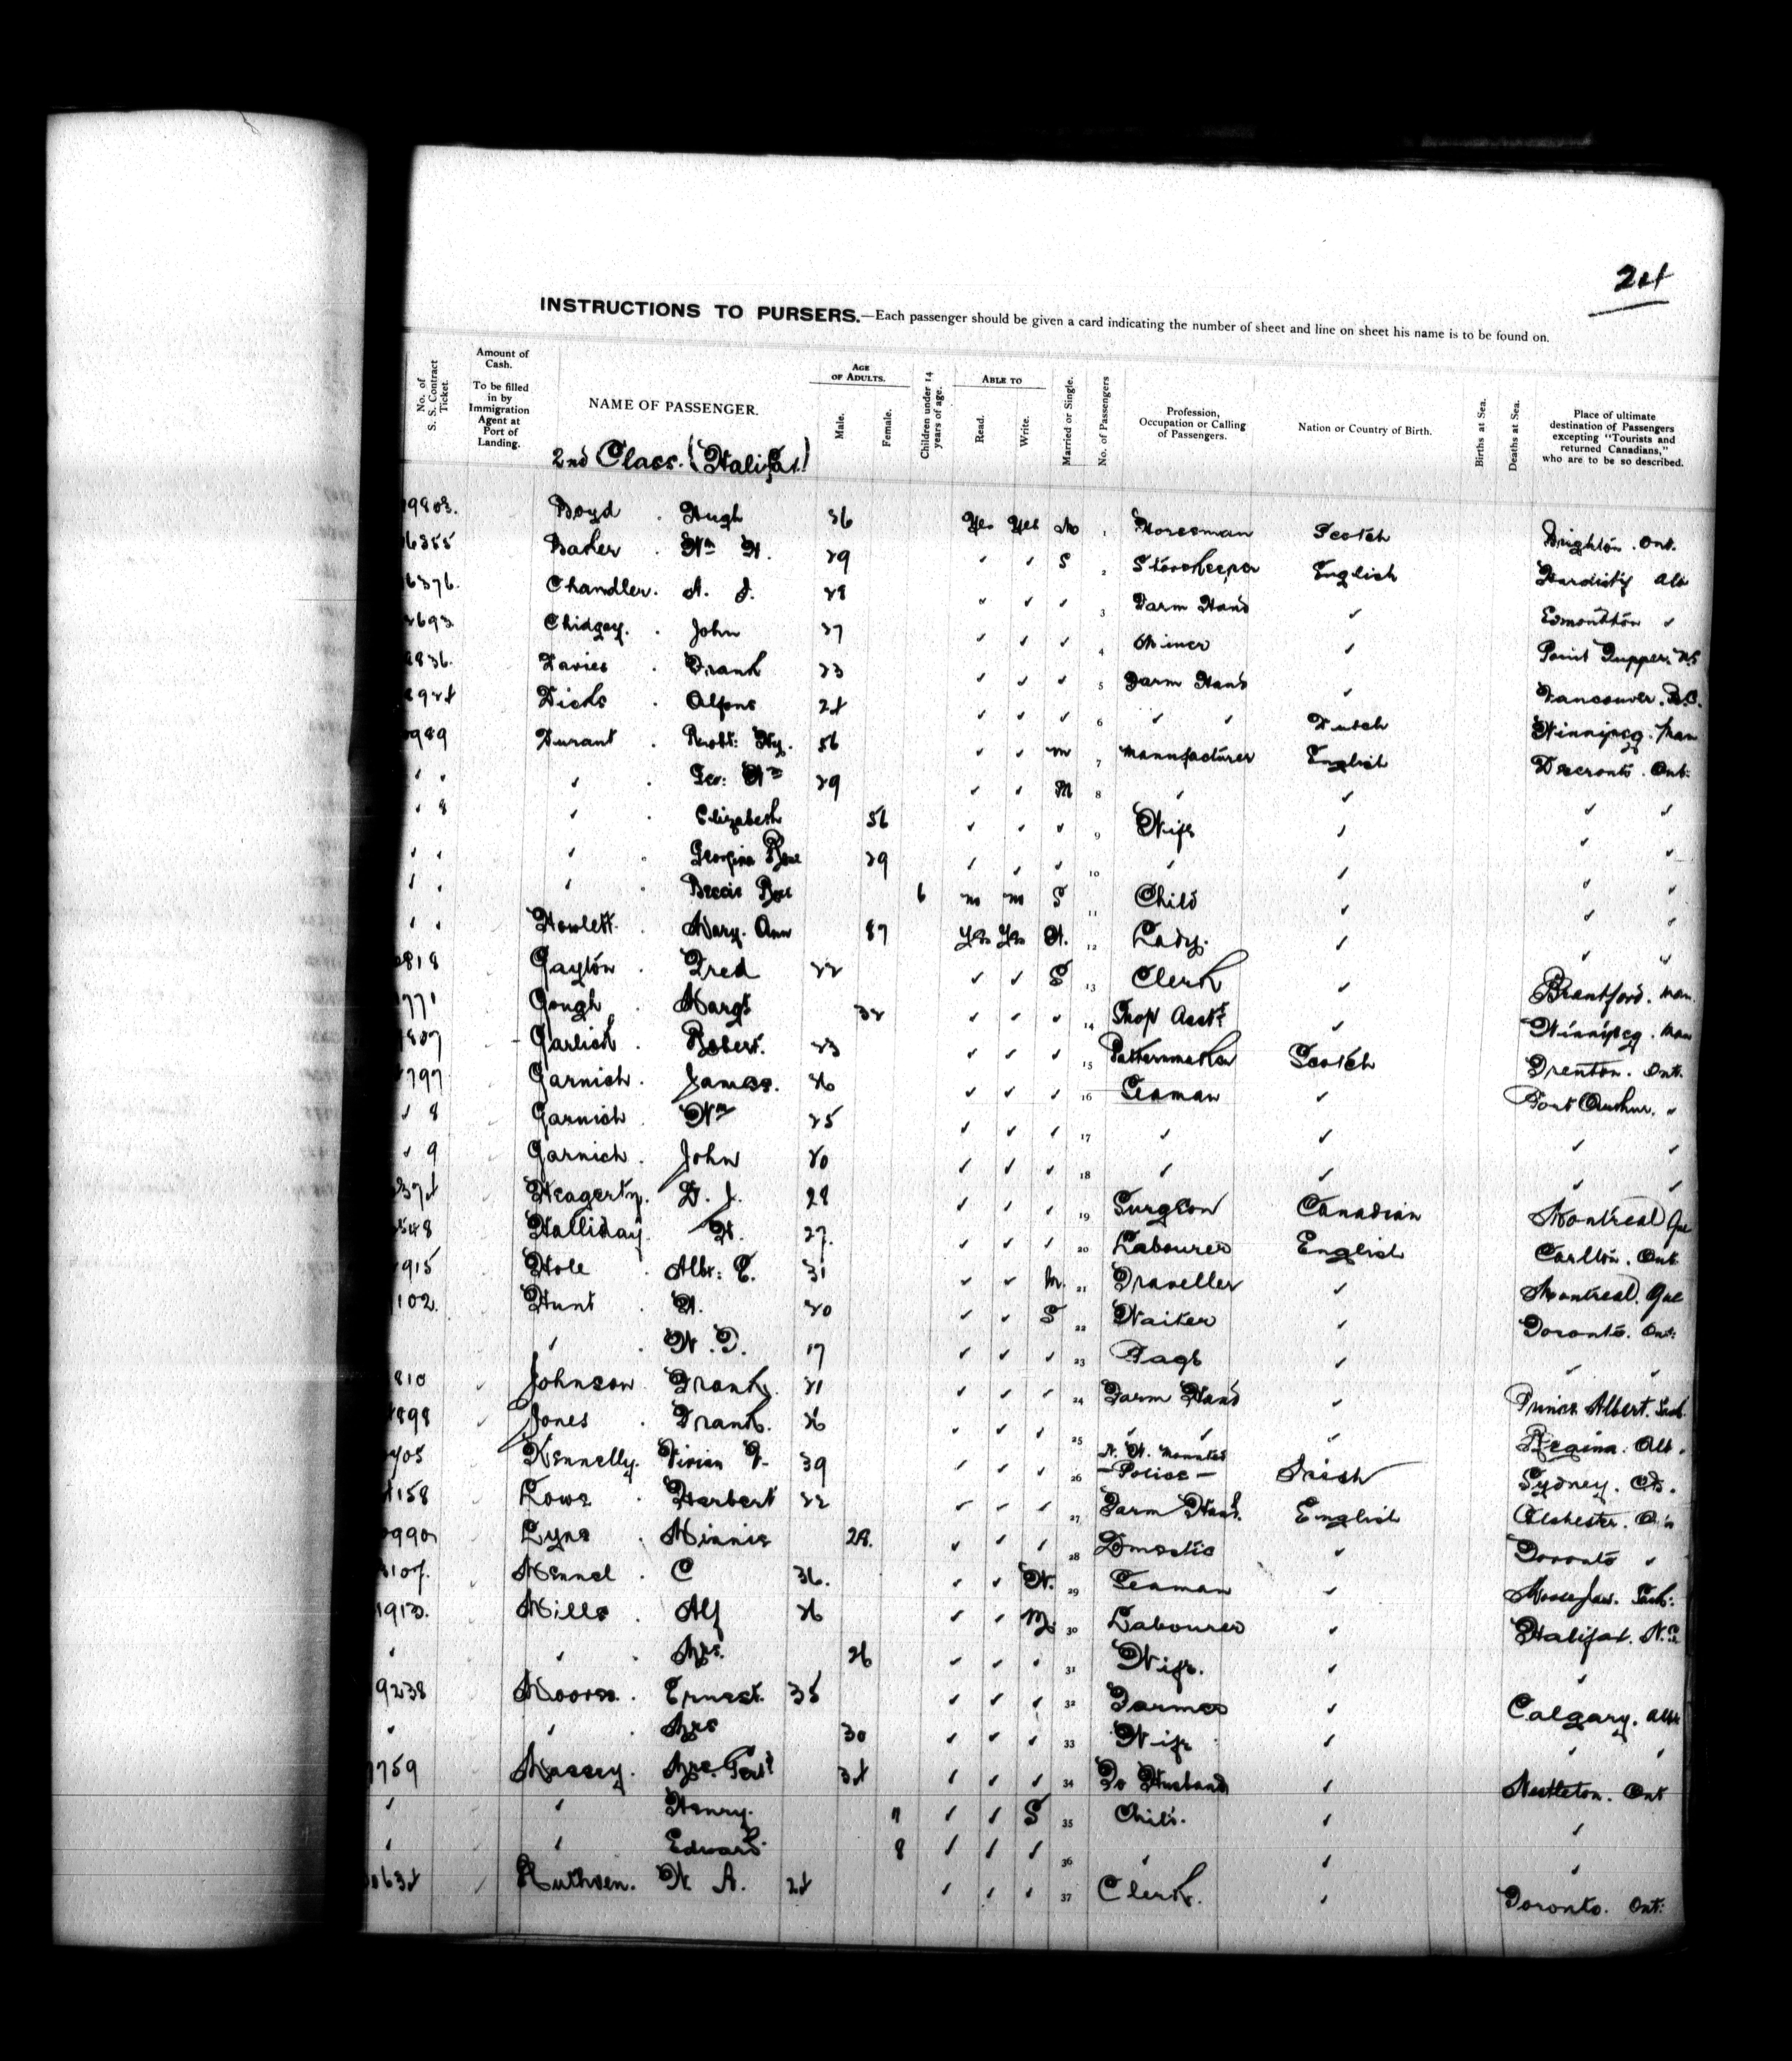 24
INSTRUCTIONS TO PURSERS.—Each passenger should be given a card indicating the number of sheet and line on sheet his name is to be found on.
No. of S. S. Contract Ticket.
Amount of Cash. To be filled in by Immigration Agent at Port of Landing.
NAME OF PASSENGER.
AGE OF ADULTS.
Male.
Female.
Children under 14 years of age.
ABLE TO
Read.
Write.
Married or Single.
No. of Passengers
Profession, Occupation or Calling of Passengers.
Nation or Country of Birth.
Births at Sea.
Deaths at Sea.
Place of ultimate destination of Passengers excepting "Tourists and returned Canadians," who are to be so described.
2nd Class. (Halifax)
9803. Boyd . Hugh 36 Yes Yes 1 Horseman Scotch Brighton . Ont.
6355 Baker . Wm H. 29 ✓ ✓ S 2 Storekeeper English Hardisty Alb
6376. Chandler. A. J. 28 " ✓ ✓ 3 Farm Hand ✓ Edmonton ✓
2693 Chidgey. . John 27 ✓ ✓ ✓ 4 Miner ✓ Point Tupper, NS
9836. Davies . Frank 23 ✓ ✓ ✓ 5 Farm Hand ✓ Vancouver. B.C.
8924 Dicks . Alfons 24 ✓ ✓ ✓ 6 ✓ ✓ Dutch Winnipeg. Man
0989 Durant . Robt: Hy. 56 ✓ ✓ m 7 Manufacturer English Deseronto. Ont:
✓ ✓ ✓ Geo: Wm 29 ✓ ✓ M 8 ✓ ✓ ✓ ✓
✓ 8 ✓ . Elizabeth 56 ✓ ✓ ✓ 9 Wife ✓ ✓ ✓
✓ ✓ ✓ . Georgina Rose 29 ✓ ✓ ✓ 10 ✓ ✓ ✓ ✓
✓ ✓ ✓ . Bessie Rose 6 no no S 11 Child ✓ ✓ ✓
✓ ✓ Howlett. Mary. Ann 87 Yes Yes W. 12 Lady. ✓ ✓ ✓
2818 Gayton . Fred 22 ✓ ✓ S 13 Clerk ✓ Brantford. Man.
771 Gough . Margt 32 ✓ ✓ ✓ 14 Shop Asst: ✓ Winnipeg. Man
9807 Garlick . Robert. 23 ✓ ✓ ✓ 15 Patternmaker Scotch Trenton. Ont.
2797 Garnich . James. 36 ✓ ✓ ✓ 16 Seaman ✓ Port Arthur. "
✓ 8 Garnich . Wm 25 ✓ ✓ ✓ 17 ✓ ✓ ✓ ✓
✓ 9 Garnich . John 20 ✓ ✓ ✓ 18 ✓ ✓ ✓ ✓
374 Heagerty. D. J. 28 ✓ ✓ ✓ 19 Surgeon Canadian Montreal Que
548 Halliday. H. 27. ✓ ✓ ✓ 20 Labourer English Carlton. Ont
915 Hole . Albt: E. 31 ✓ ✓ M. 21 Traveller ✓ Montreal. Que
102. Hunt . H. 20 ✓ ✓ S 22 Waiter ✓ Toronto. Ont:
✓ . W. T. 17 ✓ ✓ ✓ 23 Page ✓ ✓ ✓
810 Johnson . Frank. 21 ✓ ✓ ✓ 24 Farm Hand ✓ Prince Albert. Sask.
898 Jones . Frank. 26 ✓ ✓ ✓ 25 ✓ ✓ ✓ Regina. Alb.
405 Kennelly. Vivian V. 39 ✓ ✓ ✓ 26 N. W. Mounted — Police — Irish Sydney. CB.
4158 Lowe . Herbert 22 ✓ ✓ ✓ 27 Farm Hand. English Colchester.
0990 Lyne . Minnie 28. ✓ ✓ ✓ 28 Domestic ✓ Toronto ✓
8107. Mennel . C 36. ✓ ✓ W. 29 Seaman ✓ Moosejaw. Sask:
1913. Mills . Alf 26 ✓ ✓ M. 30 Labourer ✓ Halifax. N.S
✓ ✓ . Mrs. 26 ✓ ✓ ✓ 31 Wife. ✓ ✓
9238 Moores. Ernest. 35 ✓ ✓ ✓ 32 Farmer ✓ Calgary. Alb
✓ ✓ . Mrs 30 ✓ ✓ ✓ 33 Wife ✓ ✓ ✓
7759 Massey. Mrs. 34 ✓ ✓ ✓ 34 To Husband ✓ Nestleton. Ont
✓ ✓ Henry. 11 ✓ ✓ S 35 Child. ✓ ✓
✓ ✓ Edward. 8 ✓ ✓ ✓ 36 ✓ ✓ ✓
0634 Ruthven. W A. 24 ✓ ✓ ✓ 37 Clerk. ✓ Toronto. Ont: